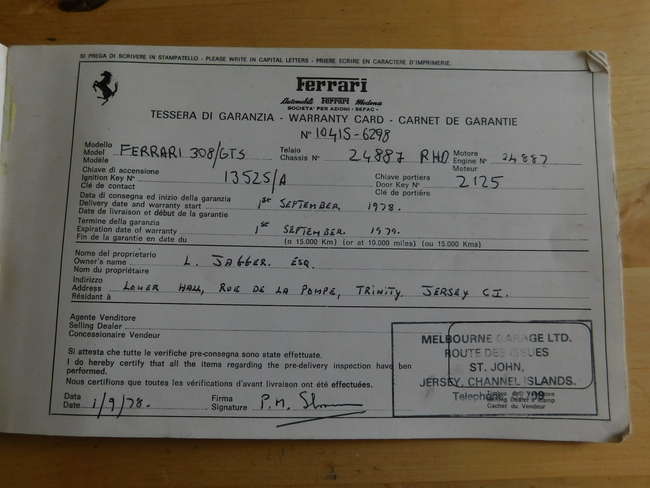 SI PREGA DI SCRIVERE IN STAMPATELLO - PLEASE WRITE IN CAPITAL LETTERS - PRIERE ECRIRE EN CARACTERE D'IMPRIMERIE.
Ferrari
Automobili Ferrari Modena
SOCIETA' PER AZIONI - SEFAC -
TESSERA DI GARANZIA - WARRANTY CARD - CARNET DE GARANTIE
N° 1041S-6298
Modello
Model FERRARI 308/GTS
Modèle
Telaio
Chassis N° 24887 RHD
Motore
Engine N° 24887
Moteur
Chiave di accensione
Ignition Key N° 13525/A
Clé de contact
Chiave portiera
Door Key N° 2125
Clé de portière
Data di consegna ed inizio della garanzia
Delivery date and warranty start 1st SEPTEMBER 1978.
Date de livraison et début de la garantie
Termine della garanzia
Expiration date of warranty 1st SEPTEMBER 1979.
Fin de la garantie en date du (o 15.000 Km) (or at 10.000 miles) (ou 15.000 Kms)
Nome del proprietario
Owner's name L. JAGGER. ESQ.
Nom du propriétaire
Indirizzo
Address LOWER HALL, RUE DE LA POMPE, TRINITY JERSEY C.I.
Résidant à
Agente Venditore
Selling Dealer
Concessionaire Vendeur
MELBOURNE GARAGE LTD.
ROUTE DES ISSUES
ST. JOHN,
JERSEY, CHANNEL ISLANDS.
Telephone
Cachet du Vendeur
Si attesta che tutte le verifiche pre-consegna sono state effettuate.
I do hereby certify that all the items regarding the pre-delivery inspection have been
performed.
Nous certifions que toutes les vérifications d'avant livraison ont été effectuées.
Data
Date 1/9/78.
Firma
Signature P.M.